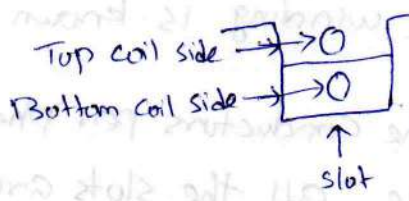 Top coil side
Bottom coil side
slot